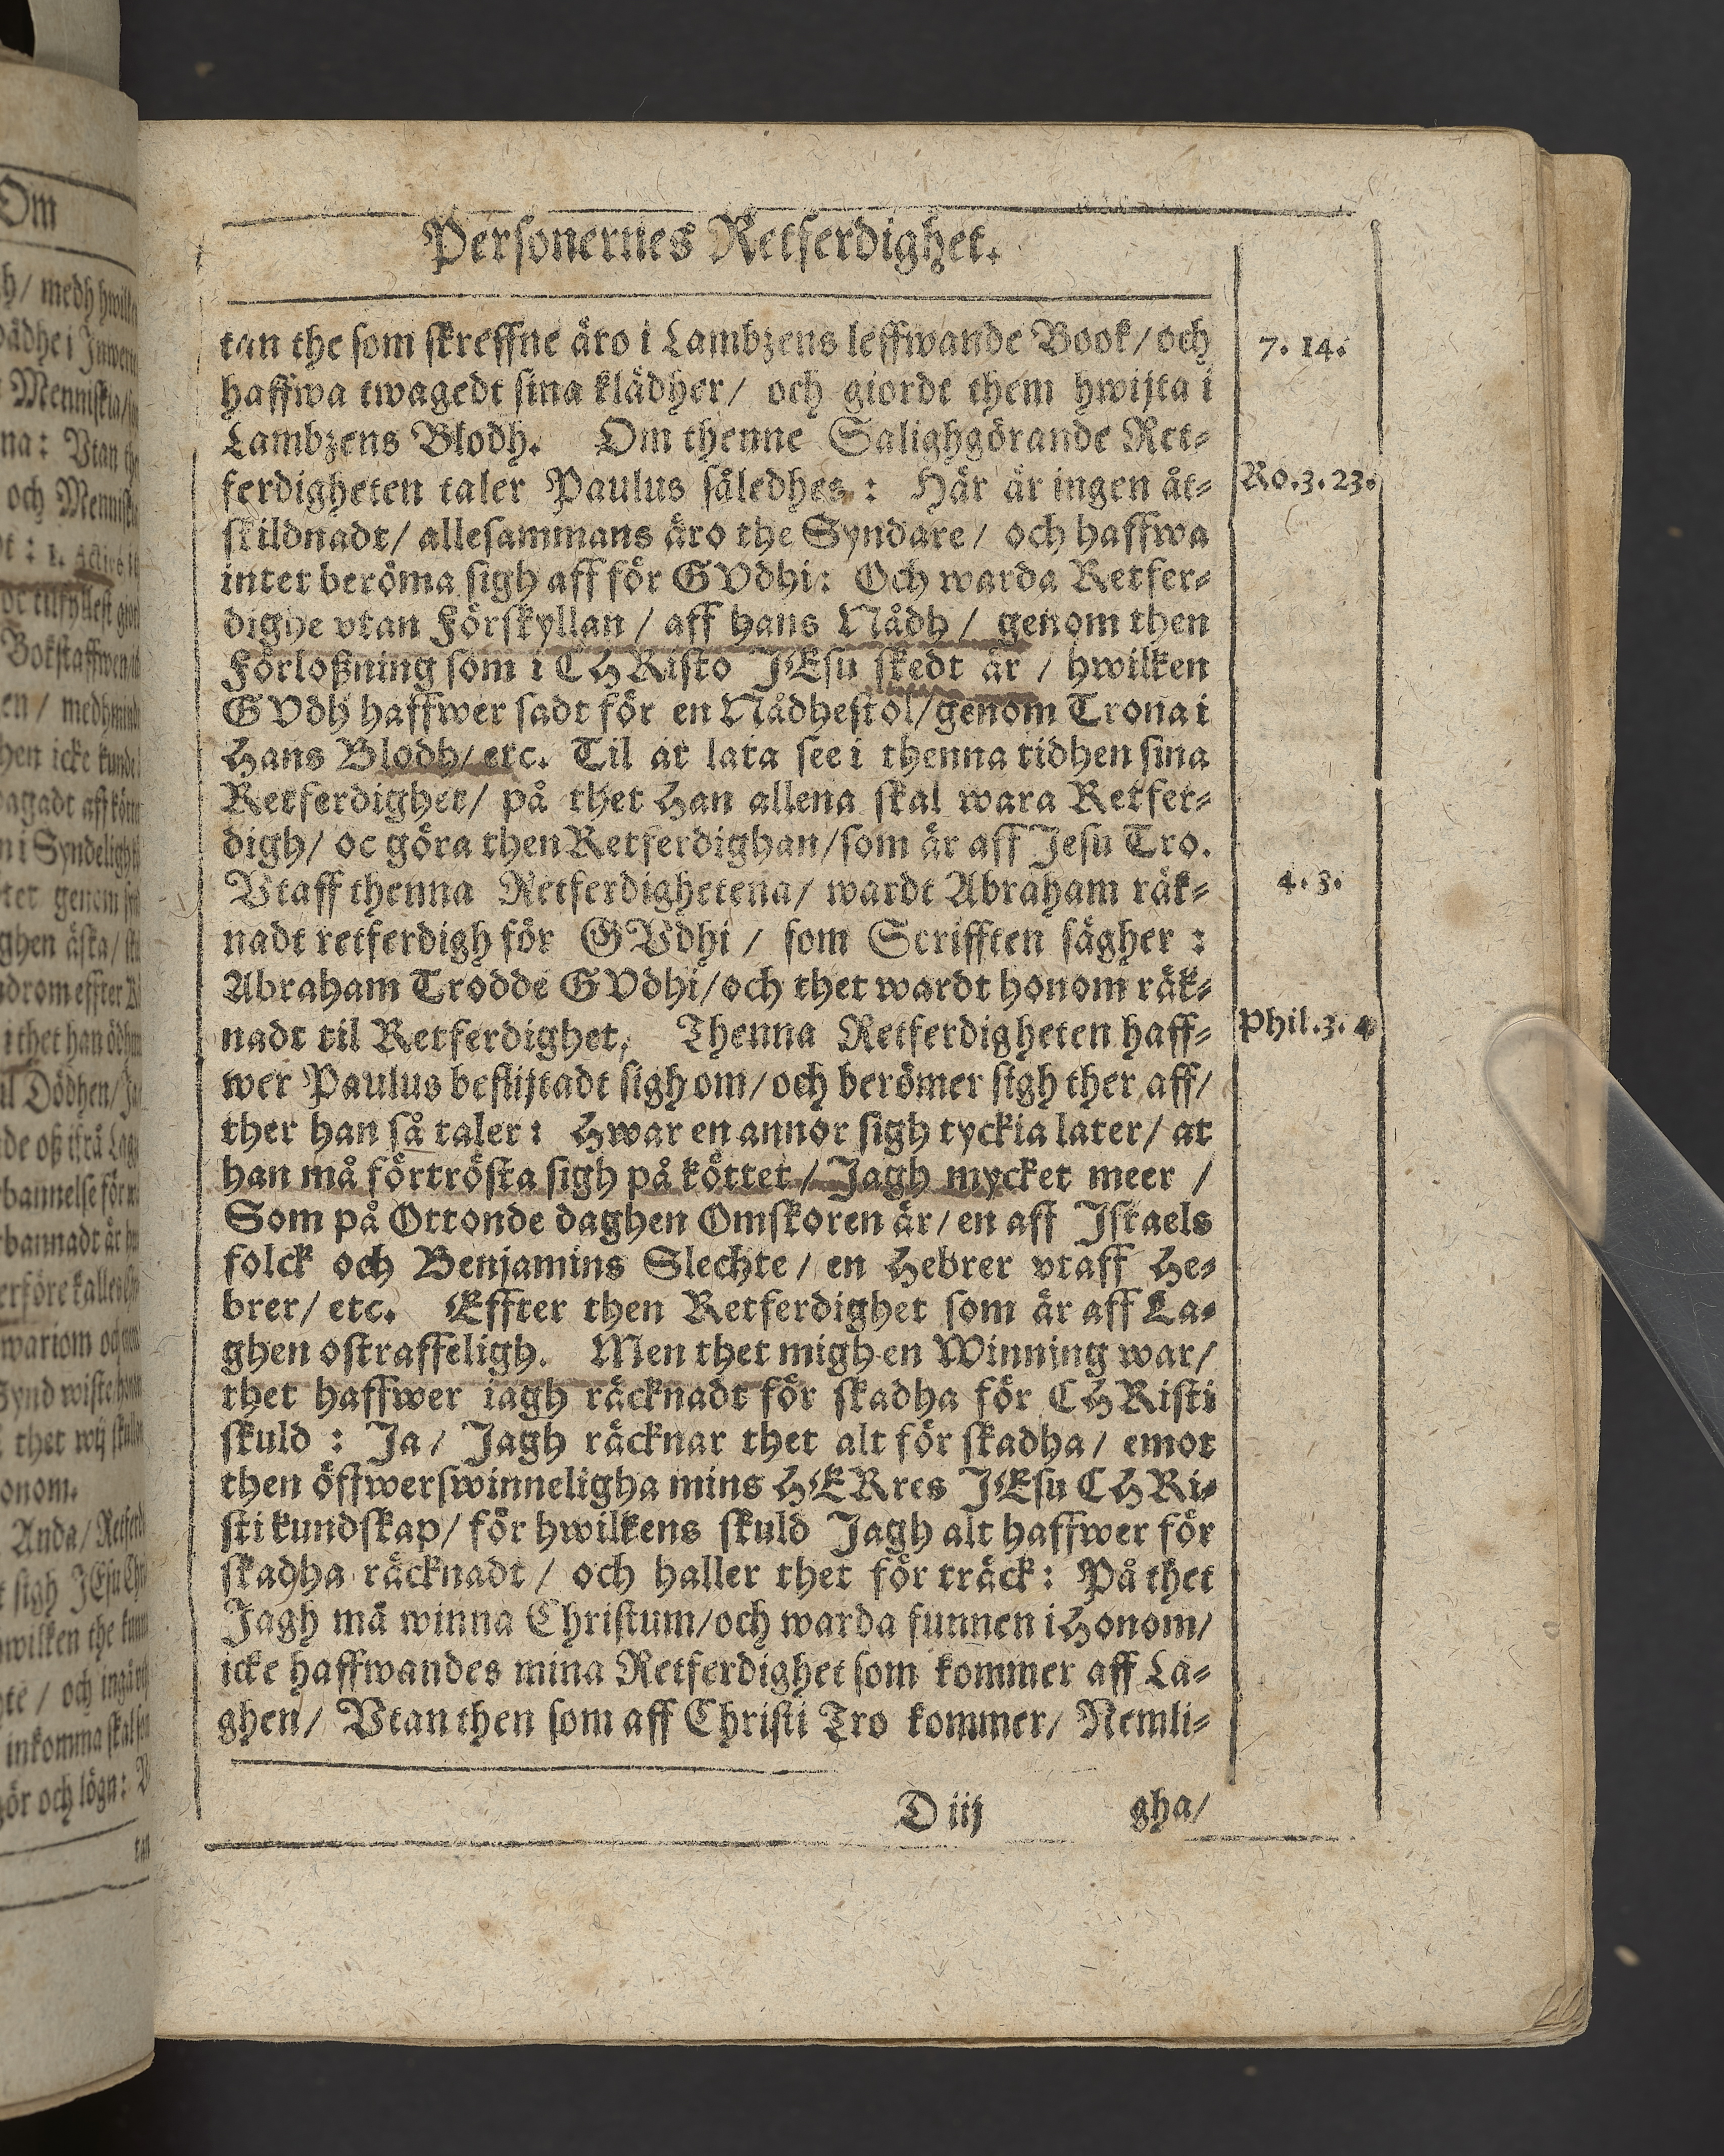 Om
Personernes Retferdighet.
tan the som skreffne äro i Lambzens leffwande Book/och
7. 14.
haffwa twagedt sina klädher/ och giordt them hwijta i
Lambzens Blodh. Om thenne Salighgörande Ret-
ferdigheten taler Paulus såledhes : Här är ingen åt-
Ro.3.23.
skildnadt/ allesammans äro the Syndare/ och haffwa
inter beröma sigh aff för GVdhi: Och warda Retfer-
dighe vtan Förskyllan / aff hans Nådh / genom then
Förloßning som i CHRisto JEsu skedt är / hwilken
GVdh haffwer sadt för en Nådhestol/genom Trona i
Hans Blodh/ etc. Til at lata see i thenna tidhen sina
Retferdighet/ på thet Han allena skal wara Retfer-
digh/ oc göra then Retferdighan/som är aff Jesu Tro.
Vtaff thenna Retferdighetena/ wardt Abraham räk-
4. 3.
nadt retferdigh för GVdhi / som Scrifften sägher :
Abraham Trodde GVdhi/och thet wardt honom räk-
nadt til Retferdighet, Thenna Retferdigheten haff-
Phil.3. 4
wer Paulus beflijtadt sigh om/och berömer sigh ther aff/
ther han så taler : Hwar en annor sigh tyckia later/ at
han må förtrösta sigh på köttet / Jagh mycket meer /
Som på Ottonde daghen Omskoren är/ en aff Israels
folck och Benjamins Slechte/ en Hebrer vtaff He-
brer/ etc. Effter then Retferdighet som är aff La-
ghen ostraffeligh. Men thet migh en Winning war/
thet haffwer iagh räcknadt för skadha för CHRisti
skuld : Ja/ Jagh räcknar thet alt för skadha/ emot
then öffwerswinneligha mins HERres JEsu CHRi-
sti kundskap/ för hwilkens skuld Jagh alt haffwer för
skadha räcknadt / och haller thet för träck : På thet
Jagh mä winna Christum/och warda funnen i Honom/
icke haffwandes mina Retferdighet som kommer aff La-
ghen/ Vtan then som aff Christi Tro kommer/ Nemli-
D iij gha/